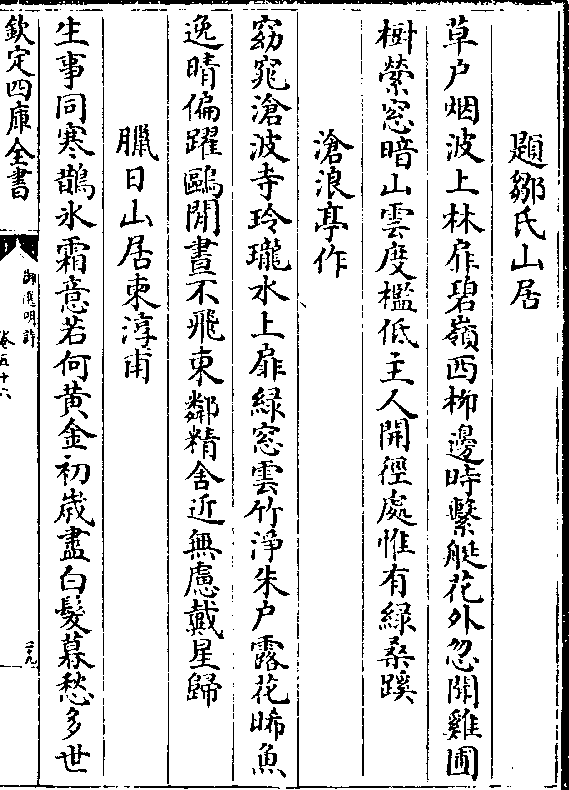 題鄒氏山居
草户烟波上林扉碧嶺西栁邊時繫艇花外忽聞雞圃
樹縈窓暗山雲度檻低主人開徑處惟有緑桑蹊
滄浪亭作
窈窕滄波寺玲瓏水上扉緑窓雲竹淨朱户露花晞魚
逸晴偏躍鷗閒晝不飛東鄰精舍近無慮戴星歸
臘日山居柬淳甫
生事同寒鵲氷霜意若何黄金初歳盡白髪暮愁多世
欽定四庫全書
御選明詩
卷五十六
二十九